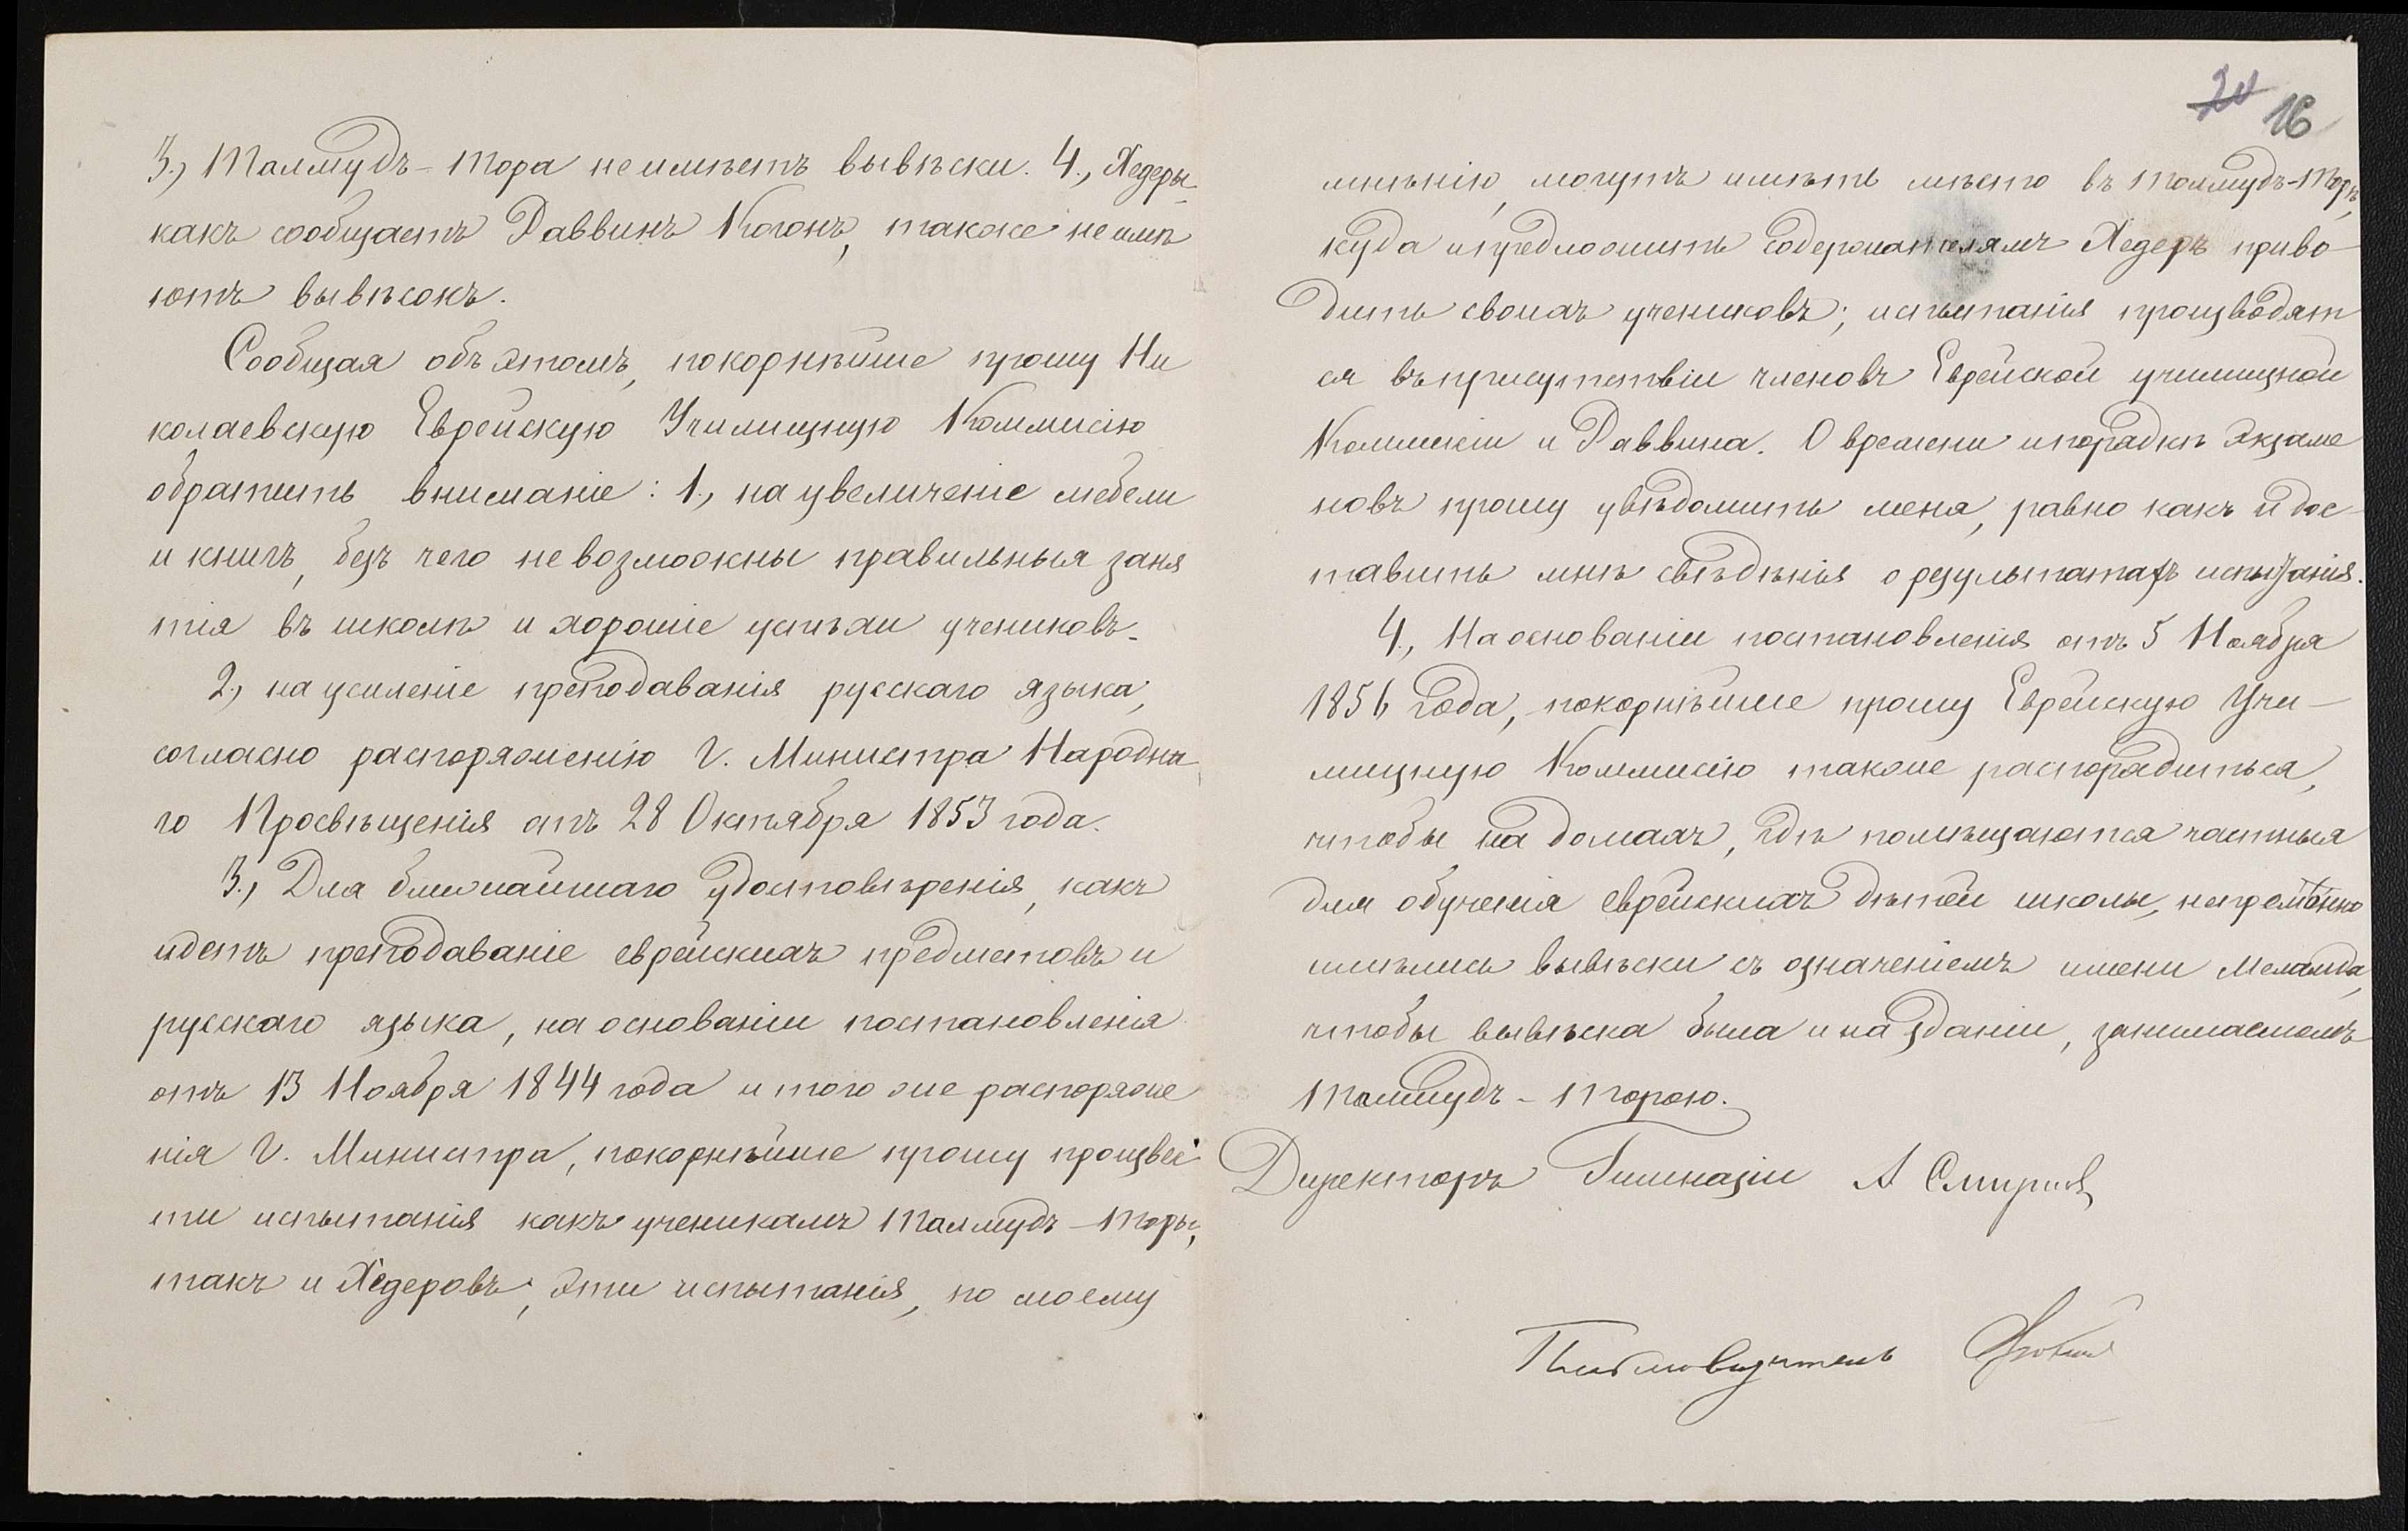 3., Талмудъ-Тора не имѣетъ вывѣски. 4., Хедеры,
какъ сообщаетъ Раввинъ Когонъ, также не имѣ
ютъ вывѣсокъ.
Сообщая объ этомъ, покорнѣйше прошу Ни
колаевскую Еврейскую Училищную Коммисію
обратить вниманіе: 1., на увеличеніе мебели
и книгъ, безъ чего не возможны правильныя заня
тія въ школѣ и хорошіе успѣхи учениковъ.
2., на усиленіе преподаванія русскаго языка,
согласно распоряженію Г. Министра Народна
го Просвѣщенія отъ 28 Октября 1853 года.
3., Для ближайшаго удостовѣренія, какъ
идетъ преподаваніе еврейскихъ предметовъ и
русскаго языка, на основаніи постановленія
отъ 13 Ноября 1844 года и того же распоряже
нія Г. Министра, покорнѣйше прошу произвес
ти испытанія какъ ученикамъ Талмудъ-Торы,
такъ и Хедеровъ; эти испытанія, по моему
20 16
мнѣнію, могутъ имѣть мѣсто въ Талмудъ-Торѣ,
куда и предложить содержателямъ Хедеръ приво
дить своихъ учениковъ; испытанія производят
ся въ присутствіи членовъ Еврейской училищной
Коммисіи и Раввина. О времени и порядкѣ экзаме
новъ прошу увѣдомить меня, равно какъ и дос
тавить мнѣ свѣдѣнія о результатахъ испытанія.
4., На основаніи постановленія отъ 5 Ноября
1856 года, покорнѣйше прошу Еврейскую Учи-
лищную Коммисію также распорядиться,
чтобы на домахъ, гдѣ помѣщаются частныя
для обученія еврейскихъ дѣтей школы, непремѣнно
имѣлись вывѣски съ означеніемъ имени Меламда,
чтобы вывѣска была и на зданіи, занимаемомъ
Талмудъ-Торою.
Директоръ Гимназіи А Смирновъ
Письмоводитель